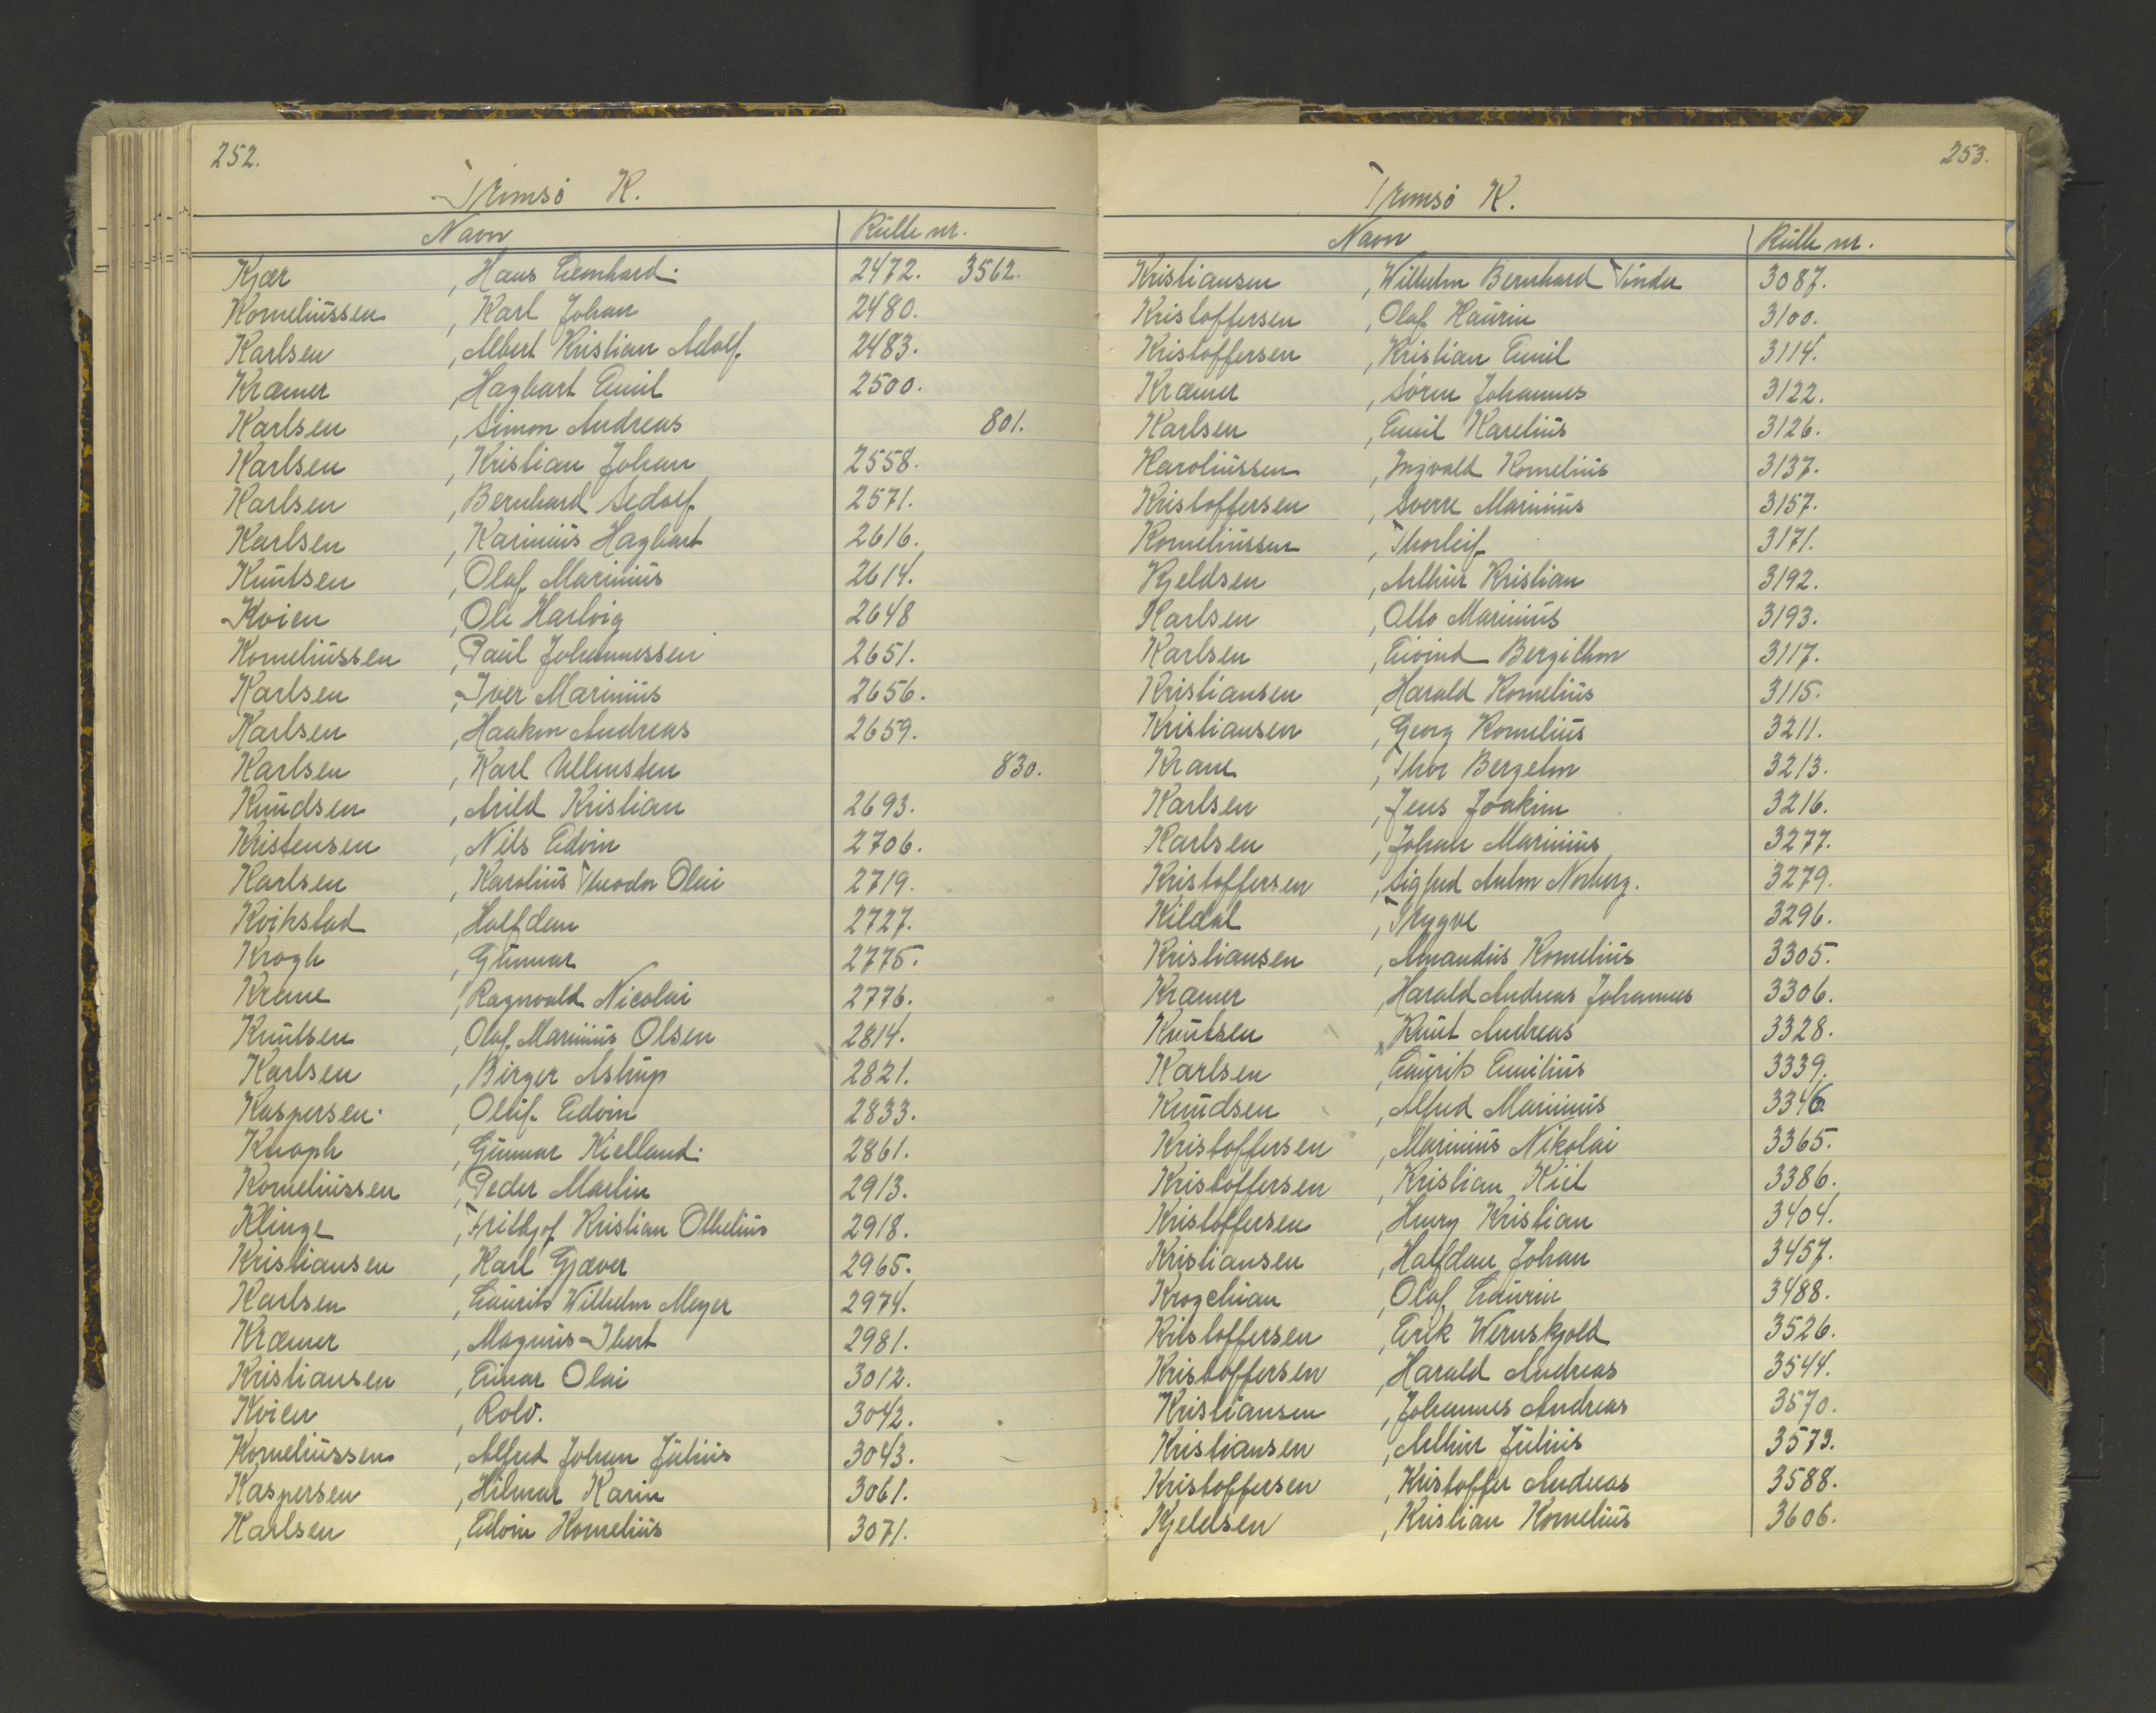 252.
Tromsø K.
Navn Rulle nr.
Kjær , Hans Leonhard. 2472. 3562.
Korneliussen , Karl Johan 2480.
Karlsen , Albert Kristian Adolf 2483.
Kræmer , Hagbart Emil 2500.
Karlsen , Simon Andreas 801.
Karlsen , Kristian Johan 2558.
Karlsen , Bernhard Sedolf 2571.
Karlsen , Karinius Hagbart 2616.
Knutsen , Olaf Marinius 2614.
Kvien , Ole Hartvig 2648
Korneliussen , Paul Johannessen 2651.
Karlsen , Iver Marinius 2656.
Karlsen , Haakon Andreas 2659.
Karlsen , Karl Ullensten 830.
Knudsen , Arild Kristian 2693.
Kristensen , Nils Edvin 2706.
Karlsen , Karolius Theodor Olai 2719.
Kvikstad , Halfdan 2727.
Krogh , Gunnar 2775.
Krane , Ragnvald Nicolai 2776.
Knutsen , Olaf Marinius Olsen 2814.
Karlsen , Birger Astrup 2821.
Kaspersen. , Oluf Edvin 2833.
Knoph , Gunnar Kielland. 2861.
Korneliussen , Peder Martin 2913.
Klinge , Frithjof Kristian Othelius 2918.
Kristiansen , Karl Gjæver 2965.
Karlsen , Laurits Wilhelm Meyer 2974.
Kræmer , Magnus Ibert 2981.
Kristiansen , Einar Olai 3012.
Kvien , Rolv. 3042.
Korneliussen , Alfred Johan Julius 3043.
Kaspersen , Hilmar Karin 3061.
Karlsen , Edvin Kornelius 3071.
253.
Tromsø K.
Navn Rulle nr.
Kristiansen , Wilhelm Bernhard 3087.
Kristoffersen , Olaf Kaurin 3100.
Kristoffersen , Kristian Emil 3114.
Kræmer , Sören Johannes 3122.
Karlsen , Emil Karelius 3126.
Karoliussen , Ingvald Kornelius 3137.
Kristoffersen , Sverre Marinius 3157.
Korneliussen , Thorleif 3171.
Kjeldsen , Arthur Kristian 3192.
Karlsen , Otto Marinius 3193.
Karlsen , Eivind Bergithon 3117.
Kristiansen , Harald Kornelius 3115.
Kristiansen , Georg Kornelius 3211.
Krane , Thor Bergeton 3213.
Karlsen , Jens Joakim 3216.
Karlsen , Johan Marinius 3277.
Kristoffersen , Sigfred Anton Norberg. 3279.
Kildal , Trygve 3296.
Kristiansen , Amandus Kornelius 3305.
Kræmer , Harald Andreas Johannes 3306.
Knutsen , Knut Andreas 3328.
Karlsen , Laurits Emilius 3339.
Knudsen , Alfred Marinius 3346.
Kristoffersen , Marinius Nikolai 3365.
Kristoffersen , Kristian Kiil 3386.
Kristoffersen , Henry Kristian 3404.
Kristiansen , Halfdan Johan 3457.
Krogelvian , Olaf Laurin 3488.
Kristoffersen , Erik Wernskjold 3526.
Kristoffersen , Harald Andreas 3544.
Kristiansen , Johannes Andreas 3570.
Kristiansen , Arthur Julius 3573.
Kristoffersen , Kristoffer Andreas 3588.
Kjeldsen , Kristian Kornelius 3606.